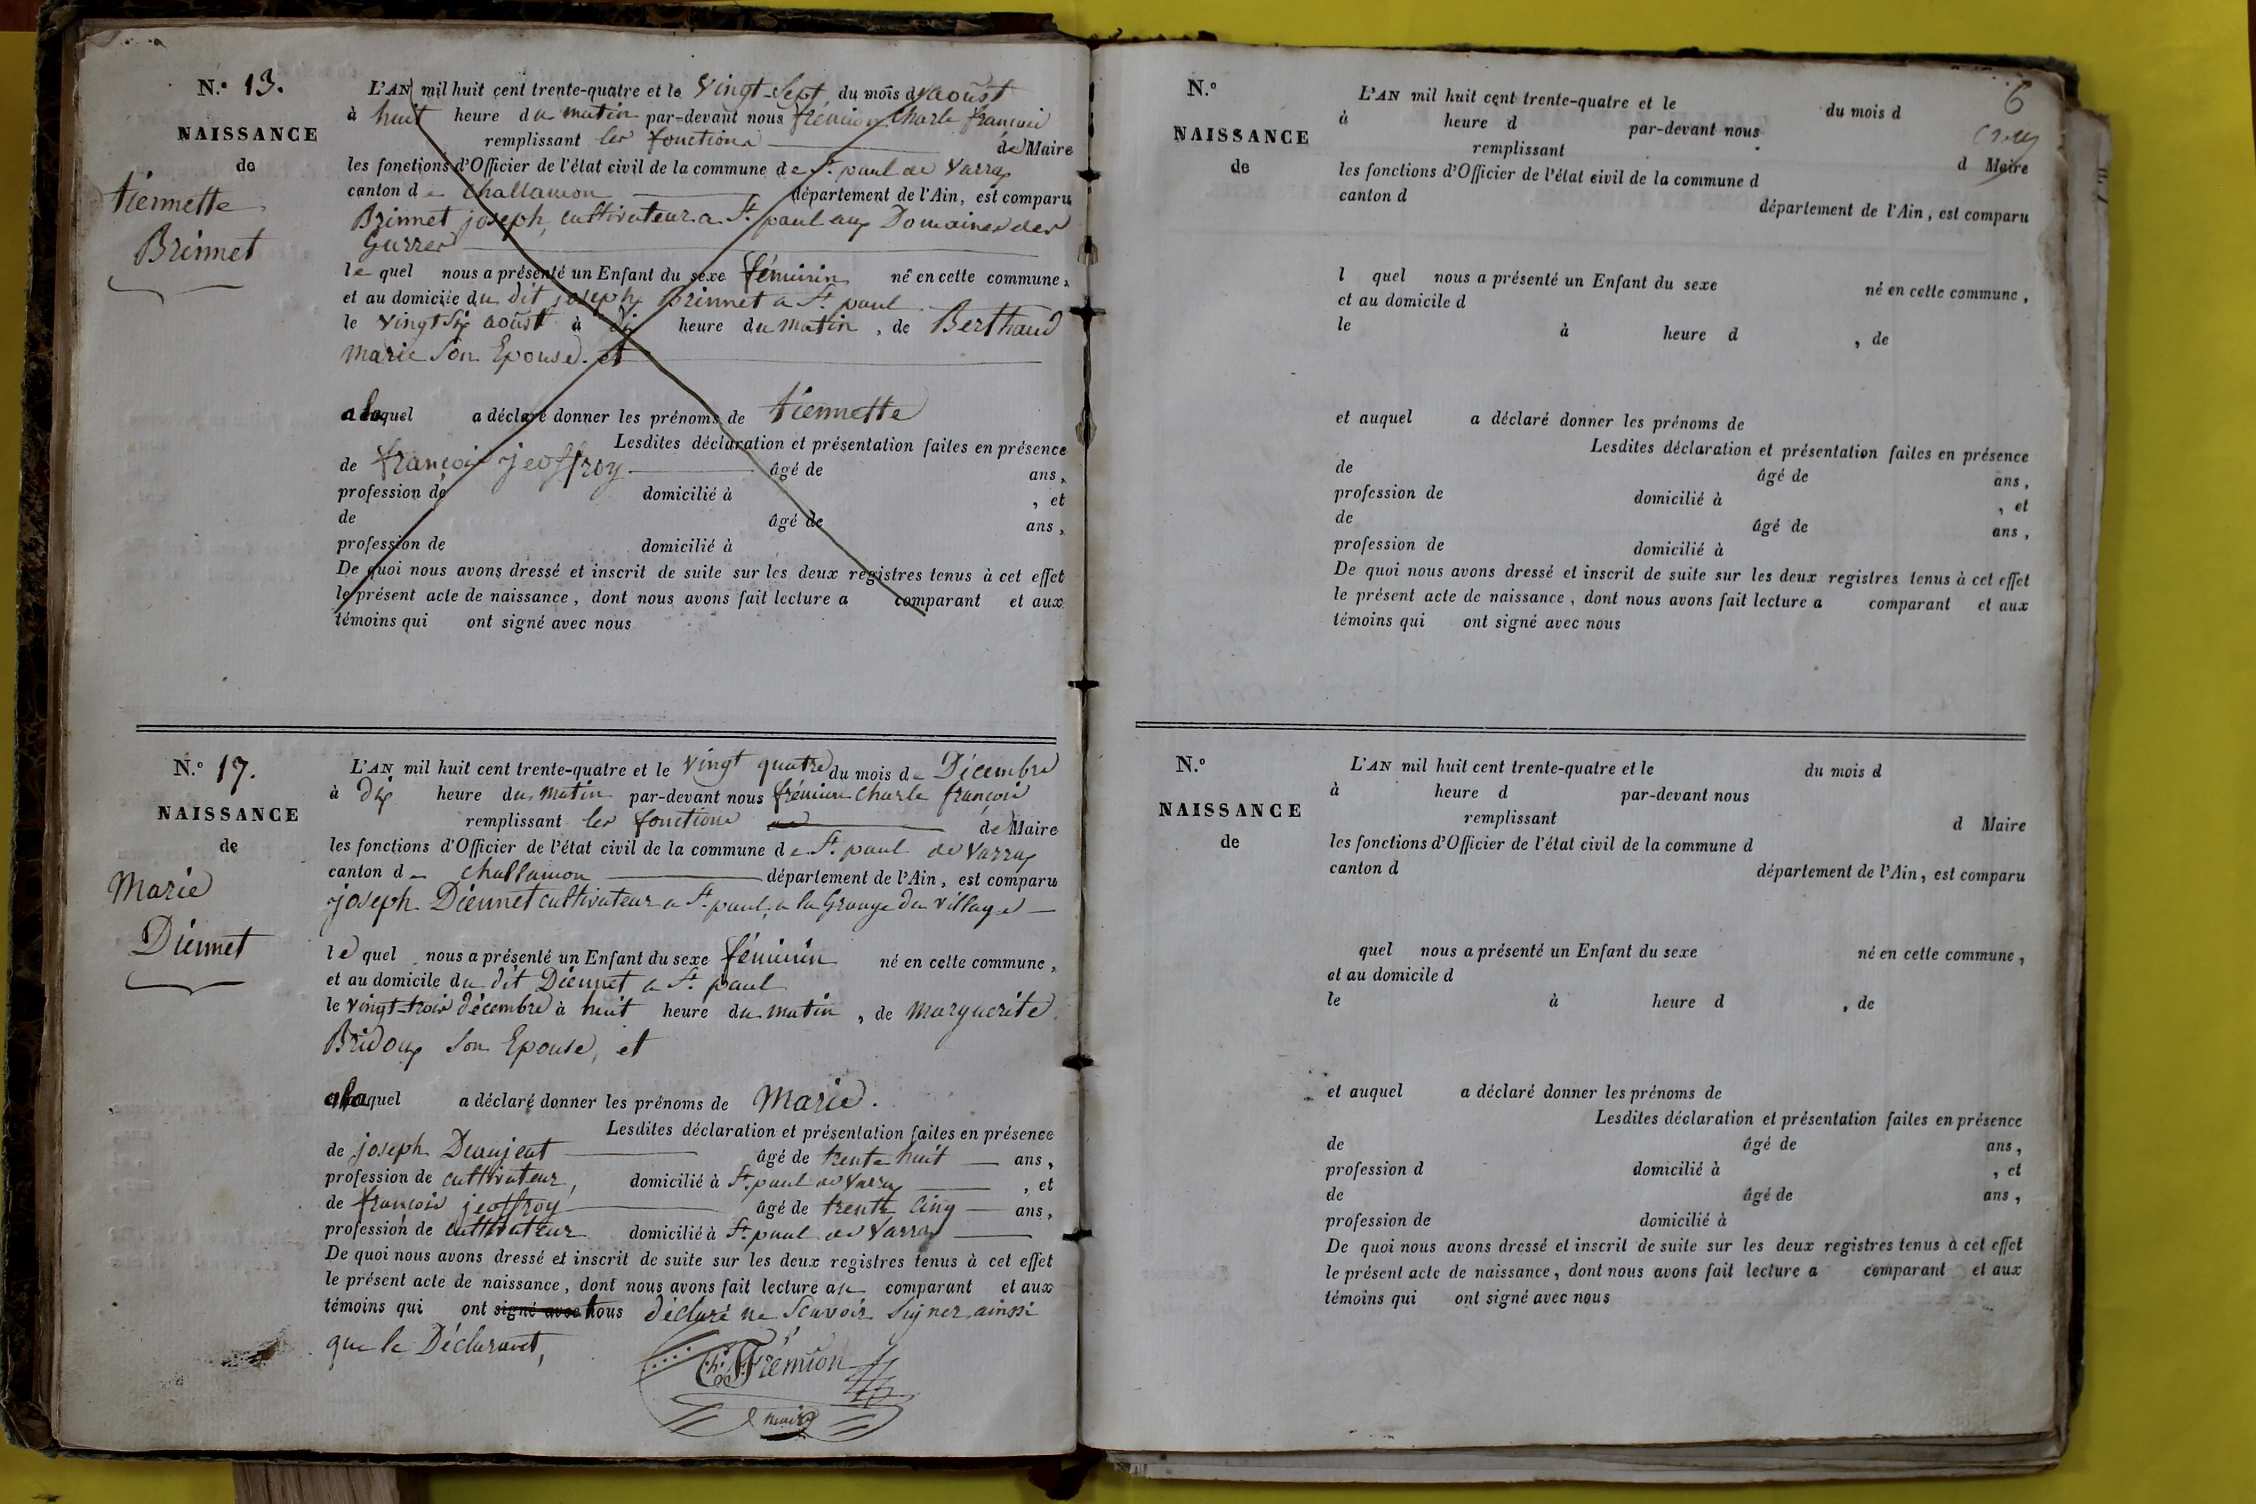 N.º 13.
NAISSANCE
de
tiennette
Brinnet
L'AN mil huit cent trente-quatre et le vingt-sept du mois d'aoust
à huit heure du matin par-devant nous frémion Charle françois
remplissant les fonctions de Maire
les fonctions d'Officier de l'état civil de la commune de St. paul de Varax
canton de Challamon département de l'Ain, est comparu
Brinnet joseph, cultivateur a St. paul aux Domaines des
le quel nous a présenté un Enfant du sexe féminin né en cette commune,
et au domicile du dit joseph Brinnet a St. paul
le vingt six aoust à dix heure du matin, de Berthaud
Marie Son Epouse. et
a laquel a déclaré donner les prénoms de tiennette
Lesdites déclaration et présentation faites en présence
de françois jeoffroy âgé de ans,
profession de domicilié à , et
de âgé de ans,
profession de domicilié à
De quoi nous avons dressé et inscrit de suite sur les deux registres tenus à cet effet
le présent acte de naissance, dont nous avons fait lecture a comparant et aux
témoins qui ont signé avec nous
N.º 17.
NAISSANCE
de
Marie
Diennet
L'AN mil huit cent trente-quatre et le vingt quatre du mois de Décembre
à dix heure du matin par-devant nous frémion Charle françois
remplissant les fonctions de Maire
les fonctions d'Officier de l'état civil de la commune de St. paul de Varax
canton de Challamon département de l'Ain, est comparu
joseph Diennet cultivateur a St. paul, a la Grange du village
le quel nous a présenté un Enfant du sexe féminin né en cette commune,
et au domicile du dit Diennet a St. paul
le vingt-trois décembre à huit heure du matin, de Marguerite
Bridoux Son Epouse, et
a laquel a déclaré donner les prénoms de Marie.
Lesdites déclaration et présentation faites en présence
de joseph Deaujeat âgé de trente huit ans,
profession de cultivateur, domicilié à St. paul de Varax , et
de françois jeoffroy âgé de trente cinq ans,
profession de cultivateur domicilié à St. paul de Varax
De quoi nous avons dressé et inscrit de suite sur les deux registres tenus à cet effet
le présent acte de naissance, dont nous avons fait lecture au comparant et aux
témoins qui ont signé avec nous déclaré ne Scavoir Signer ainsi
que le Déclarant,
Ch. Frémion
maire
6
N.º
NAISSANCE
de
L'AN mil huit cent trente-quatre et le du mois d
à heure d par-devant nous
remplissant d Maire
les fonctions d'Officier de l'état civil de la commune d
canton d département de l'Ain, est comparu
l quel nous a présenté un Enfant du sexe né en cette commune,
et au domicile d
le à heure d , de
et auquel a déclaré donner les prénoms de
Lesdites déclaration et présentation faites en présence
de âgé de ans,
profession de domicilié à , et
de âgé de ans,
profession de domicilié à
De quoi nous avons dressé et inscrit de suite sur les deux registres tenus à cet effet
le présent acte de naissance, dont nous avons fait lecture a comparant et aux
témoins qui ont signé avec nous
N.º
NAISSANCE
de
L'AN mil huit cent trente-quatre et le du mois d
à heure d par-devant nous
remplissant d Maire
les fonctions d'Officier de l'état civil de la commune d
canton d département de l'Ain, est comparu
quel nous a présenté un Enfant du sexe né en cette commune,
et au domicile d
le à heure d , de
et auquel a déclaré donner les prénoms de
Lesdites déclaration et présentation faites en présence
de âgé de ans,
profession d domicilié à , et
de âgé de ans,
profession de domicilié à
De quoi nous avons dressé et inscrit de suite sur les deux registres tenus à cet effet
le présent acte de naissance, dont nous avons fait lecture a comparant et aux
témoins qui ont signé avec nous